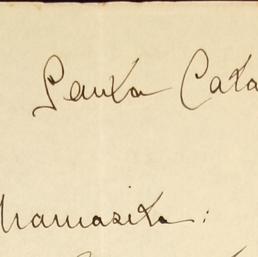 Santa Cata
Mamasita: